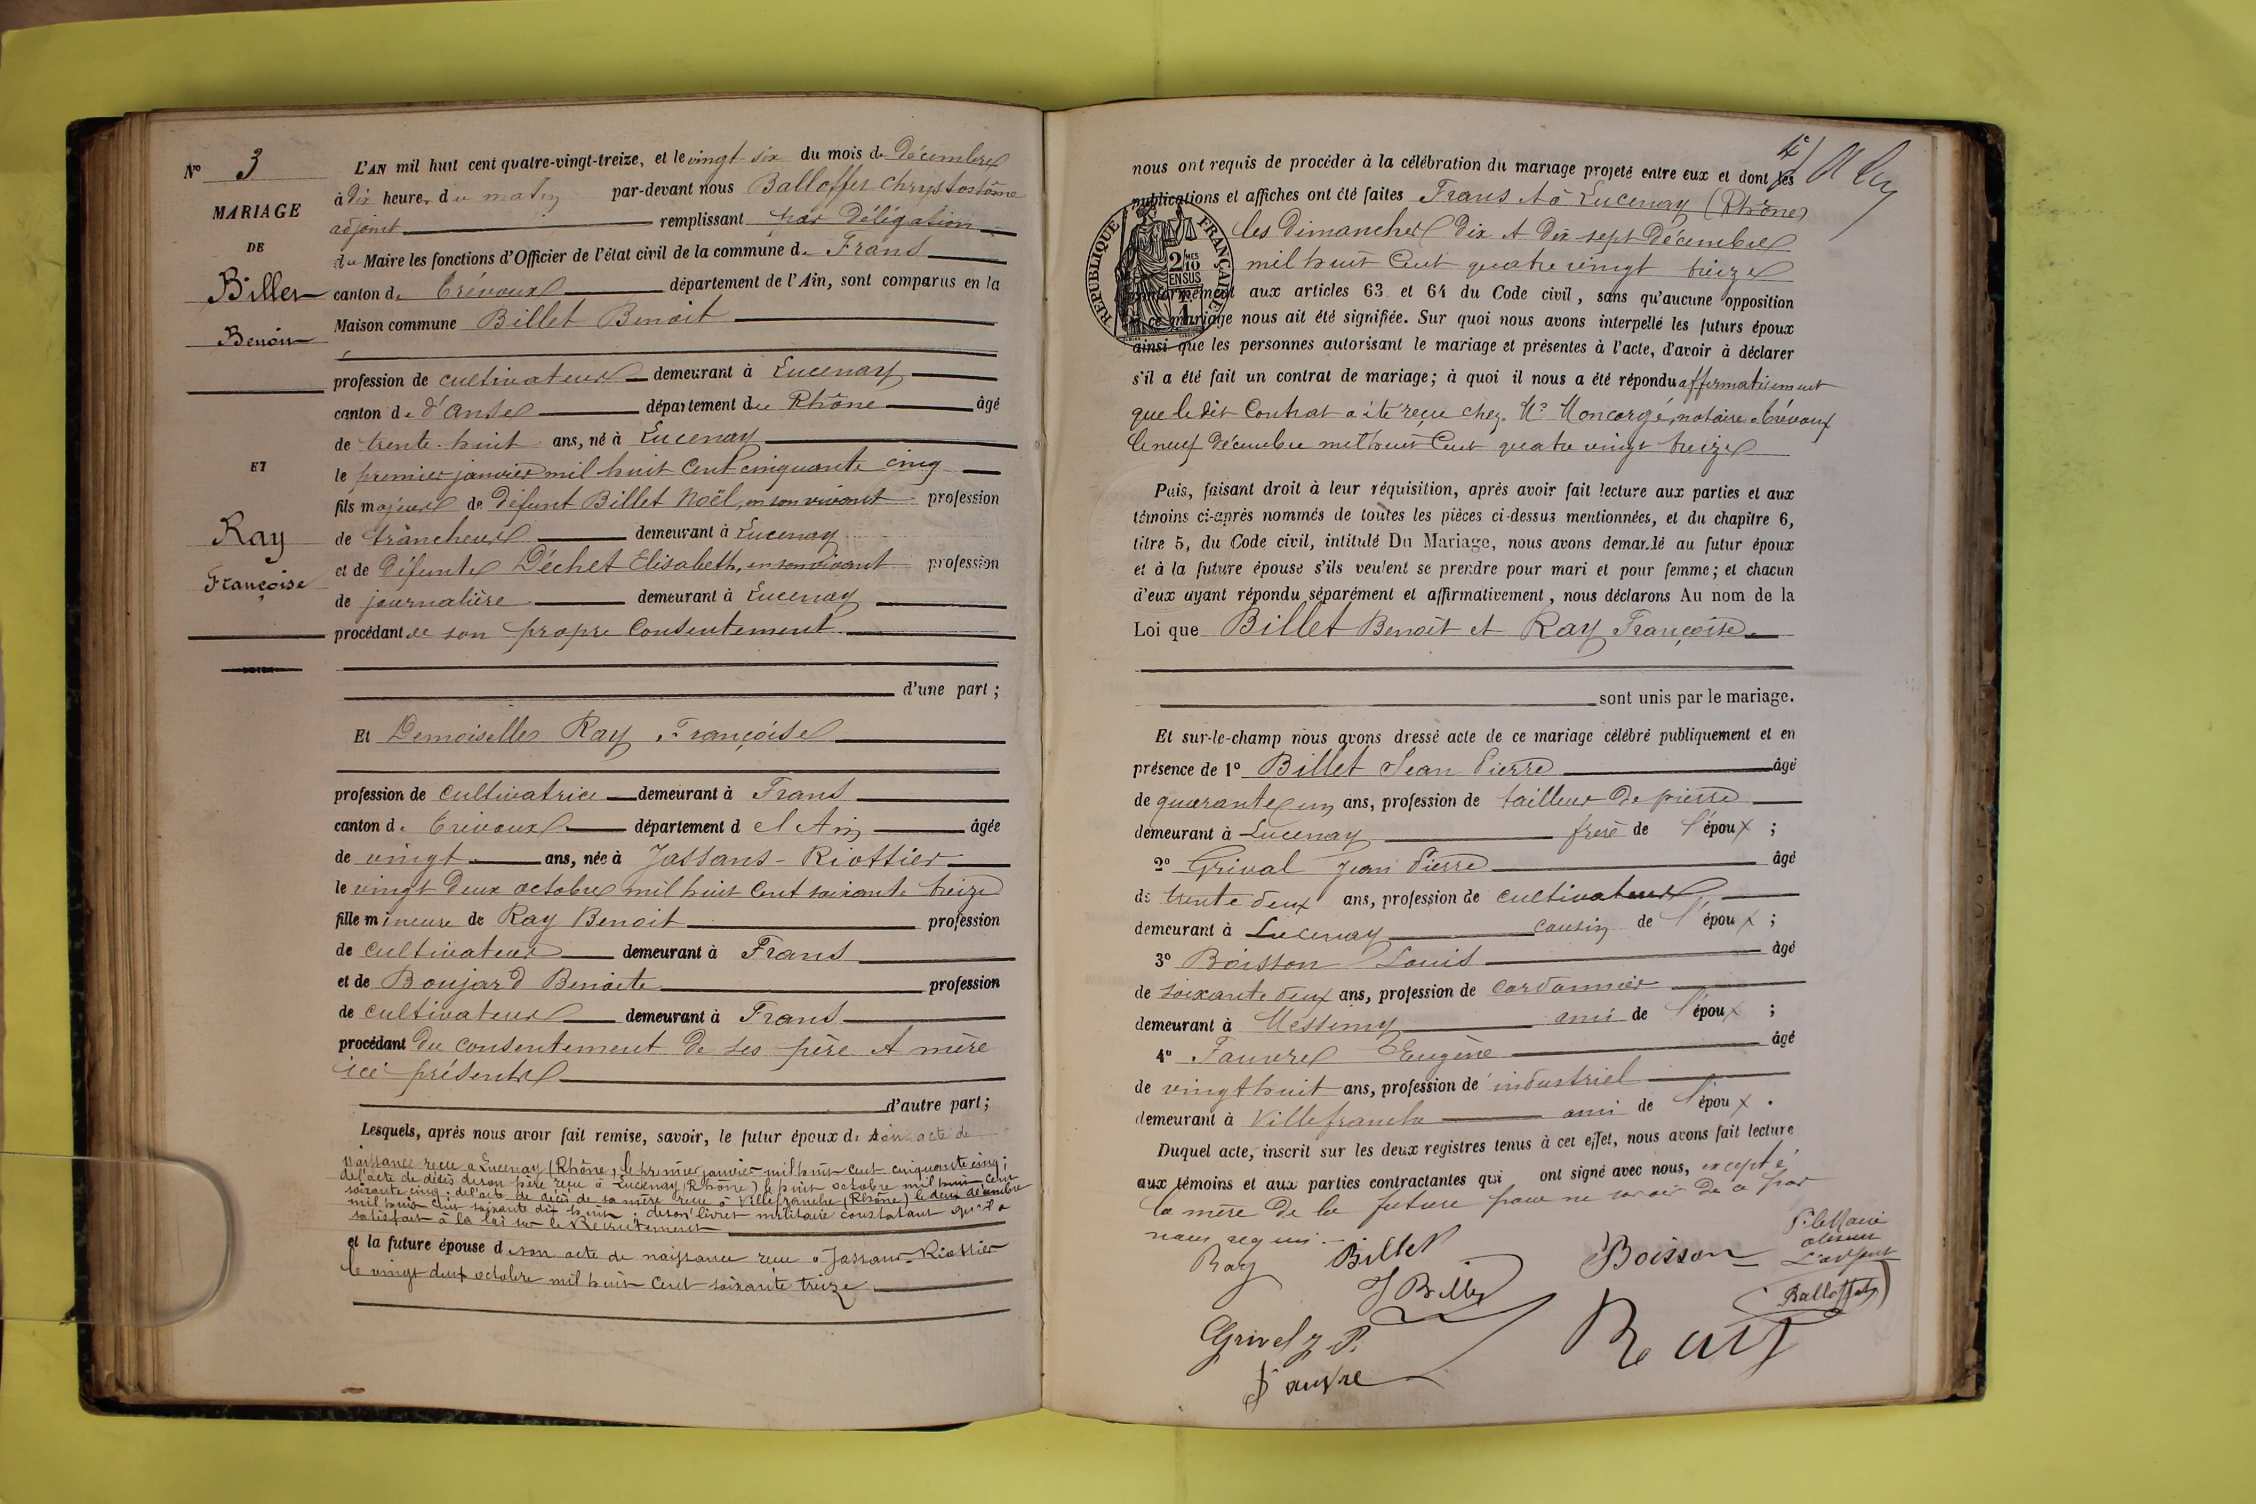 N° 3
MARIAGE
DE
Billet
Benoit
ET
Ray
Françoise
L'AN mil huit cent quatre-vingt-treize, et le vingt six du mois de décembre
à dix heures du matin par-devant nous Balloffet Chrysostôme
adjoint remplissant par délégation
du Maire les fonctions d'Officier de l'état civil de la commune de Frans
canton de Trévoux département de l'Ain, sont comparus en la
Maison commune Billet Benoit
profession de cultivateur demeurant à Lucenay
canton de d'Anse département du Rhône âgé
de trente-huit ans, né à Lucenay
le premier janvier mil huit cent cinquante cinq
fils majeur de défunt Billet Noël, en son vivant profession
de trancheur demeurant à Lucenay
et de défunte Déchet Elisabeth, en son vivant profession
de journalière demeurant à Lucenay
procédant de son propre consentement
d'une part ;
Et Demoiselle Ray Françoise
profession de cultivatrice demeurant à Frans
canton de Trévoux département de l'Ain âgée
de vingt ans, née à Jassans-Riottier
le vingt deux octobre mil huit cent soixante treize
fille mineure de Ray Benoit profession
de cultivateur demeurant à Frans
et de Boujard Benoite profession
de cultivateur demeurant à Frans
procédant du consentement de ses père et mère
ici présents
d'autre part ;
Lesquels, après nous avoir fait remise, savoir, le futur époux de son acte de
naissance reçu à Lucenay (Rhône) le premier janvier mil huit cent cinquante cinq ;
de l'acte de décès de son père reçu à Lucenay (Rhône) le huit octobre mil huit cent
soixante cinq ; de l'acte de décès de sa mère reçu à Villefranche (Rhône) le deux décembre
mil huit cent soixante dix huit ; de son livret militaire constatant qu'il a
satisfait à la loi sur le Recrutement
et la future épouse de son acte de naissance reçu à Jassans-Riottier
le vingt deux octobre mil huit cent soixante treize
nous ont requis de procéder à la célébration du mariage projeté entre eux et dont les
publications et affiches ont été faites Frans et à Lucenay (Rhône)
les dimanches dix et dix sept décembre
mil huit cent quatre vingt treize
RÉPUBLIQUE FRANÇAISE
2 MES
10
EN SUS
conformément aux articles 63 et 64 du Code civil, sans qu'aucune opposition
à ce mariage nous ait été signifiée. Sur quoi nous avons interpellé les futurs époux
ainsi que les personnes autorisant le mariage et présentes à l'acte, d'avoir à déclarer
s'il a été fait un contrat de mariage ; à quoi il nous a été répondu affirmativement
que le dit contrat a été reçu chez Me Moncorgé, notaire à Trévoux
le neuf décembre mil huit cent quatre vingt treize
Puis, faisant droit à leur réquisition, après avoir fait lecture aux parties et aux
témoins ci-après nommés de toutes les pièces ci-dessus mentionnées, et du chapitre 6,
titre 5, du Code civil, intitulé Du Mariage, nous avons demandé au futur époux
et à la future épouse s'ils veulent se prendre pour mari et pour femme ; et chacun
d'eux ayant répondu séparément et affirmativement, nous déclarons Au nom de la
Loi que Billet Benoît et Ray Françoise
sont unis par le mariage.
Et sur-le-champ nous avons dressé acte de ce mariage célébré publiquement et en
présence de 1° Billet Jean Pierre âgé
de quarante un ans, profession de tailleur de pierre
demeurant à Lucenay frère de l'époux ;
2° Grival Jean Pierre âgé
de trente deux ans, profession de cultivateur
demeurant à Lucenay cousin de l'époux ;
3° Boisson Louis âgé
de soixante deux ans, profession de cordonnier
demeurant à Messimy ami de l'époux ;
4° Fauvre Eugène âgé
de vingt huit ans, profession de industriel
demeurant à Villefranche ami de l'époux.
Duquel acte, inscrit sur les deux registres tenus à cet effet, nous avons fait lecture
aux témoins et aux parties contractantes qui ont signé avec nous, excepté
la mère de la future pour ne savoir de ce par
nous requis.
Ray Billet Boisson P. le Maire
absent
L'adjoint
J Billet Balloffet
Grivel J. P. Ray
Fauvre